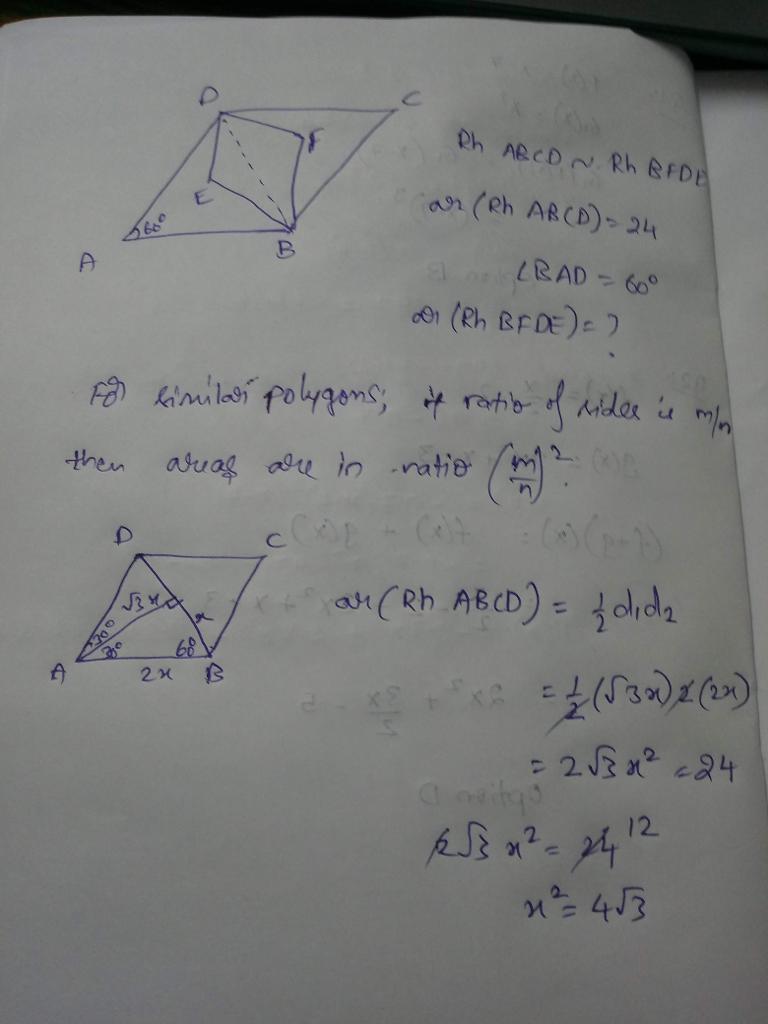 D C
F
E
60°
A B
Rh ABCD ~ Rh BFDE
ar (Rh ABCD) = 24
∠BAD = 60°
ar (Rh BFDE) = ?
For similar polygons; if ratio of sides is m/n
then areas are in ratio (m/n)².
D C
√3x x
30°
30° 60°
A 2x B
ar (Rh ABCD) = 1/2 d₁d₂
= 1/2 (√3x) 2 (2x)
= 2√3 x² = 24
2√3 x² = 24 12
x² = 4√3